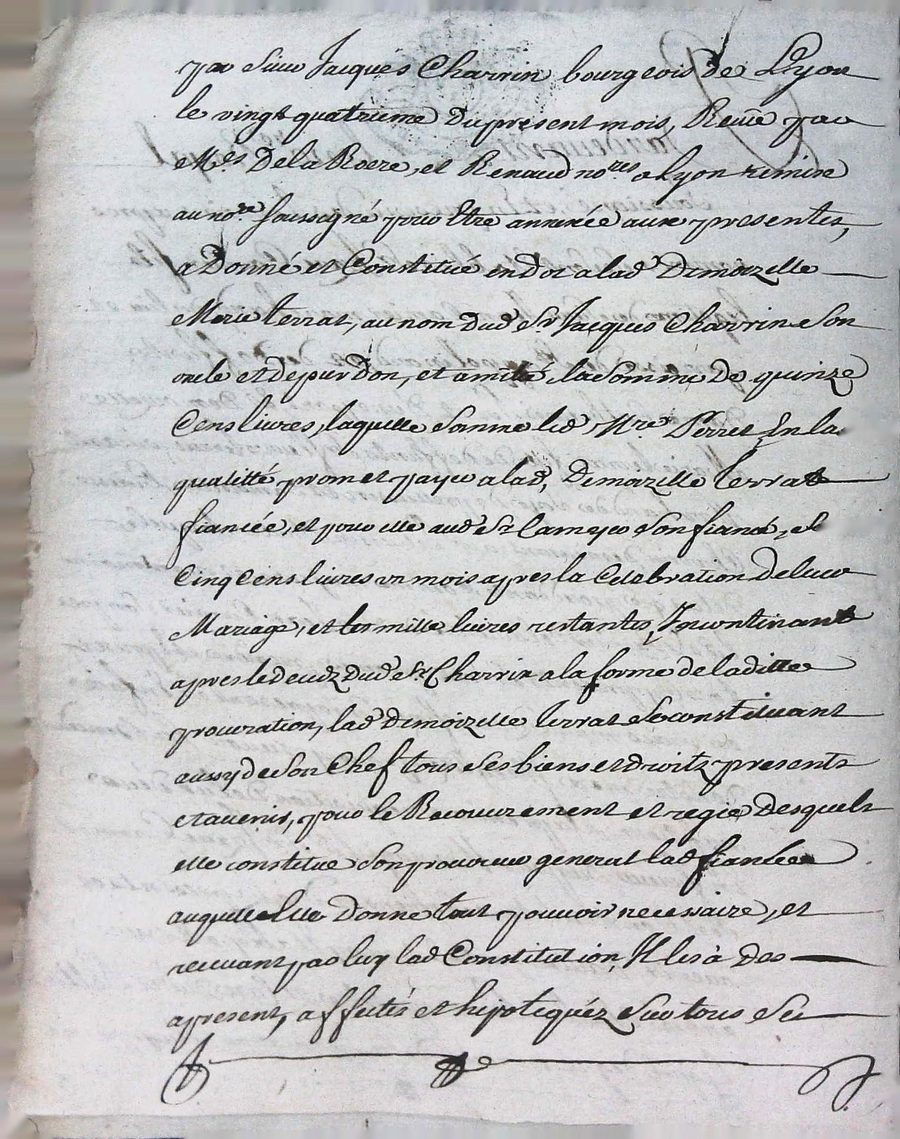 par Sieur Jacques Charrin bourgeois de Lyon
le vingt quatrieme du present mois, Reçue par
Mes. De la Roere, et Renaud nores a Lyon remise
au nore soussigné pour Etre annexée aux presentes,
a Donné et Constitué en dot a lad. Demoizelle
Marie terrat, au nom dud. Sr. Jacques Charrin Son
oncle et de pur don, et amitié la Somme de quinze
Cens livres, laquelle Somme led. Mre. Perret En la
qualitté promet payer a lad. Demoizelle Terrat
fiancée, et pour elle aud. Sr. Lameyer Son fiancé,
Cinq Cens livres un mois apres la Celebration de leur
Mariage, et les mille livres restantes Incontinant
apres le decedz dud. Sr. Charrin a la forme de laditte
procuration, lad. demoizelle Terrat Se constituant
aussy de Son Chef tous Ses biens et droitz presents
et avenir, pour le Recouvrement et regie Desquels
elle constitue Son procureur general led. fiancé
auquel elle Donne tout pouvoir necessaire, et
recevant par luy lad. Constitution, Il les à des
apresent, affectés et hipotequéz Sur tous Ses